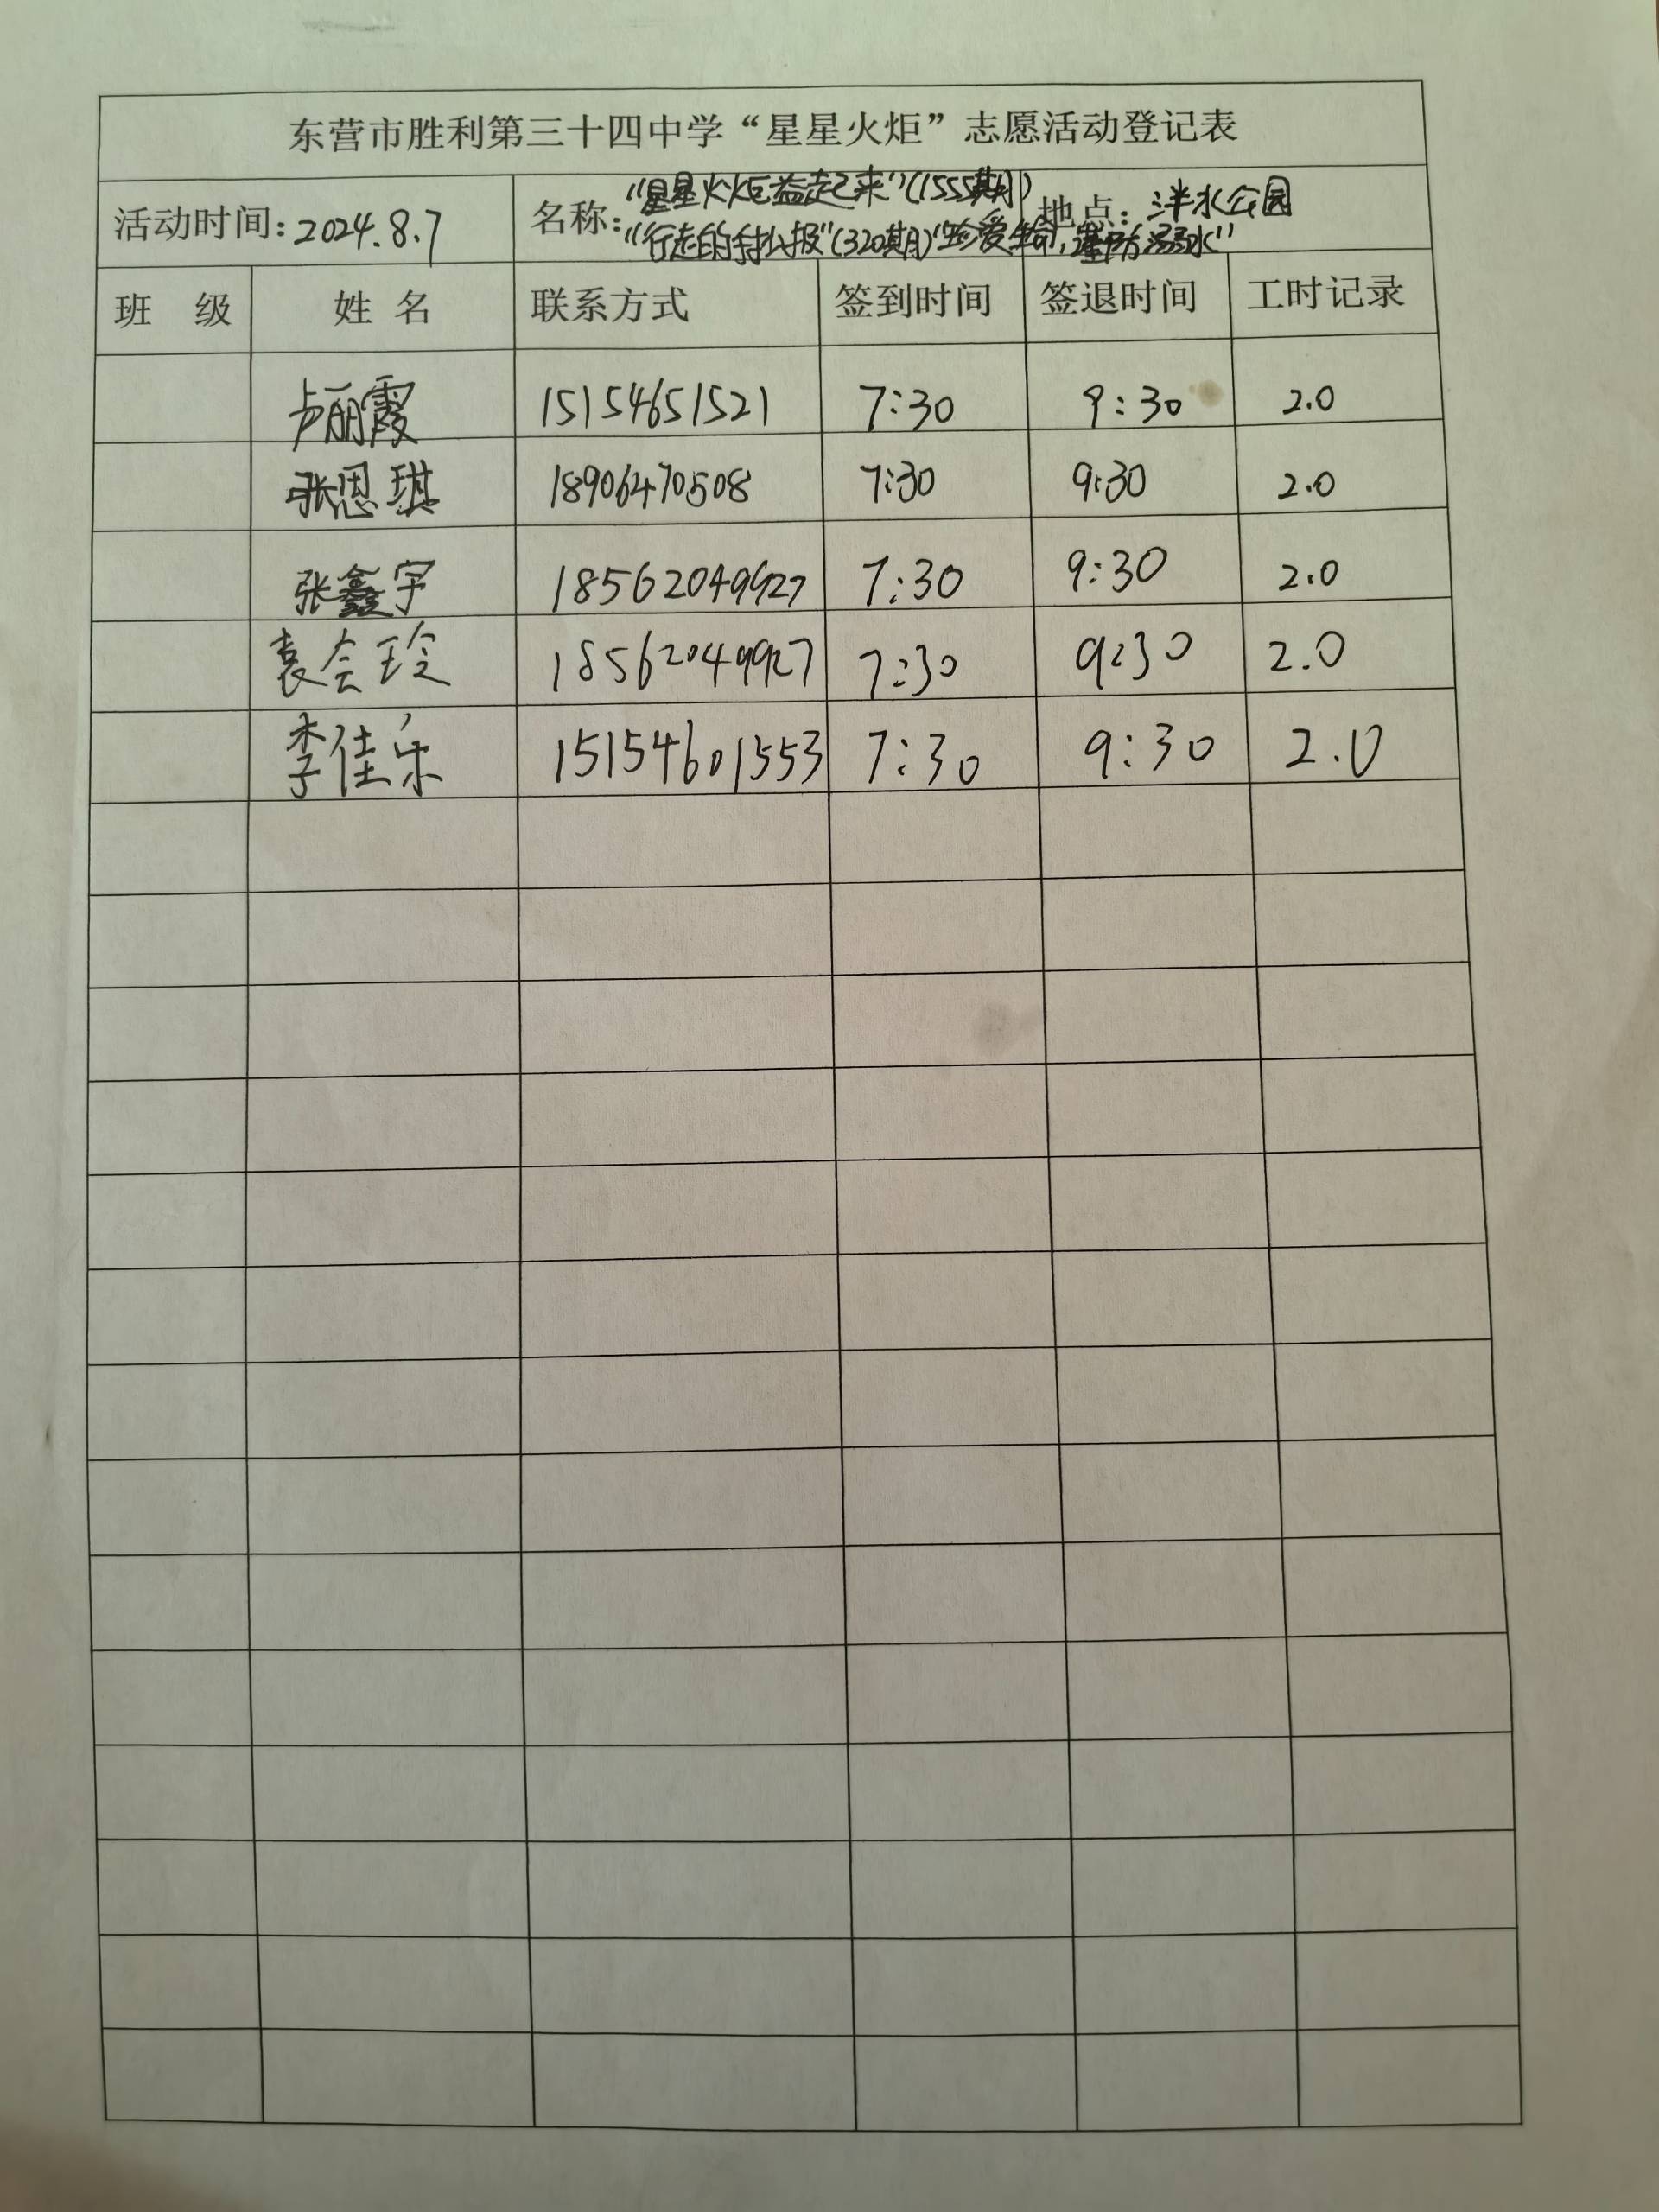 东营市胜利第三十四中学“星星火炬”志愿活动登记表
活动时间：2024.8.7 名称：“星星火炬益起来”(1555期) “行走的手抄报”(320期)“珍爱生命，谨防溺水” 地点：泮水公园
班 级 姓 名 联系方式 签到时间 签退时间 工时记录
卢丽霞 15154651521 7:30 9:30 2.0
张恩琪 18906470508 7:30 9:30 2.0
张鑫宇 18562049927 7:30 9:30 2.0
袁会玲 18562049927 7:30 9:30 2.0
李佳乐 15154601553 7:30 9:30 2.0